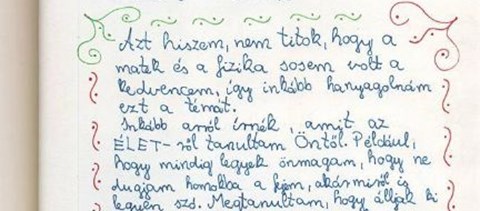 Azt hiszem, nem titok, hogy a
matek és a fizika sosem volt a
kedvencem, így inkább hanyagolnám
ezt a témát.
Inkább arról írnék, amit az
ÉLET-ről tanultam Öntől. Például,
hogy mindig legyek önmagam, hogy ne
dugjam homokba a fejem, akármiről is
legyen szó. Megtanultam, hogy álljak ki